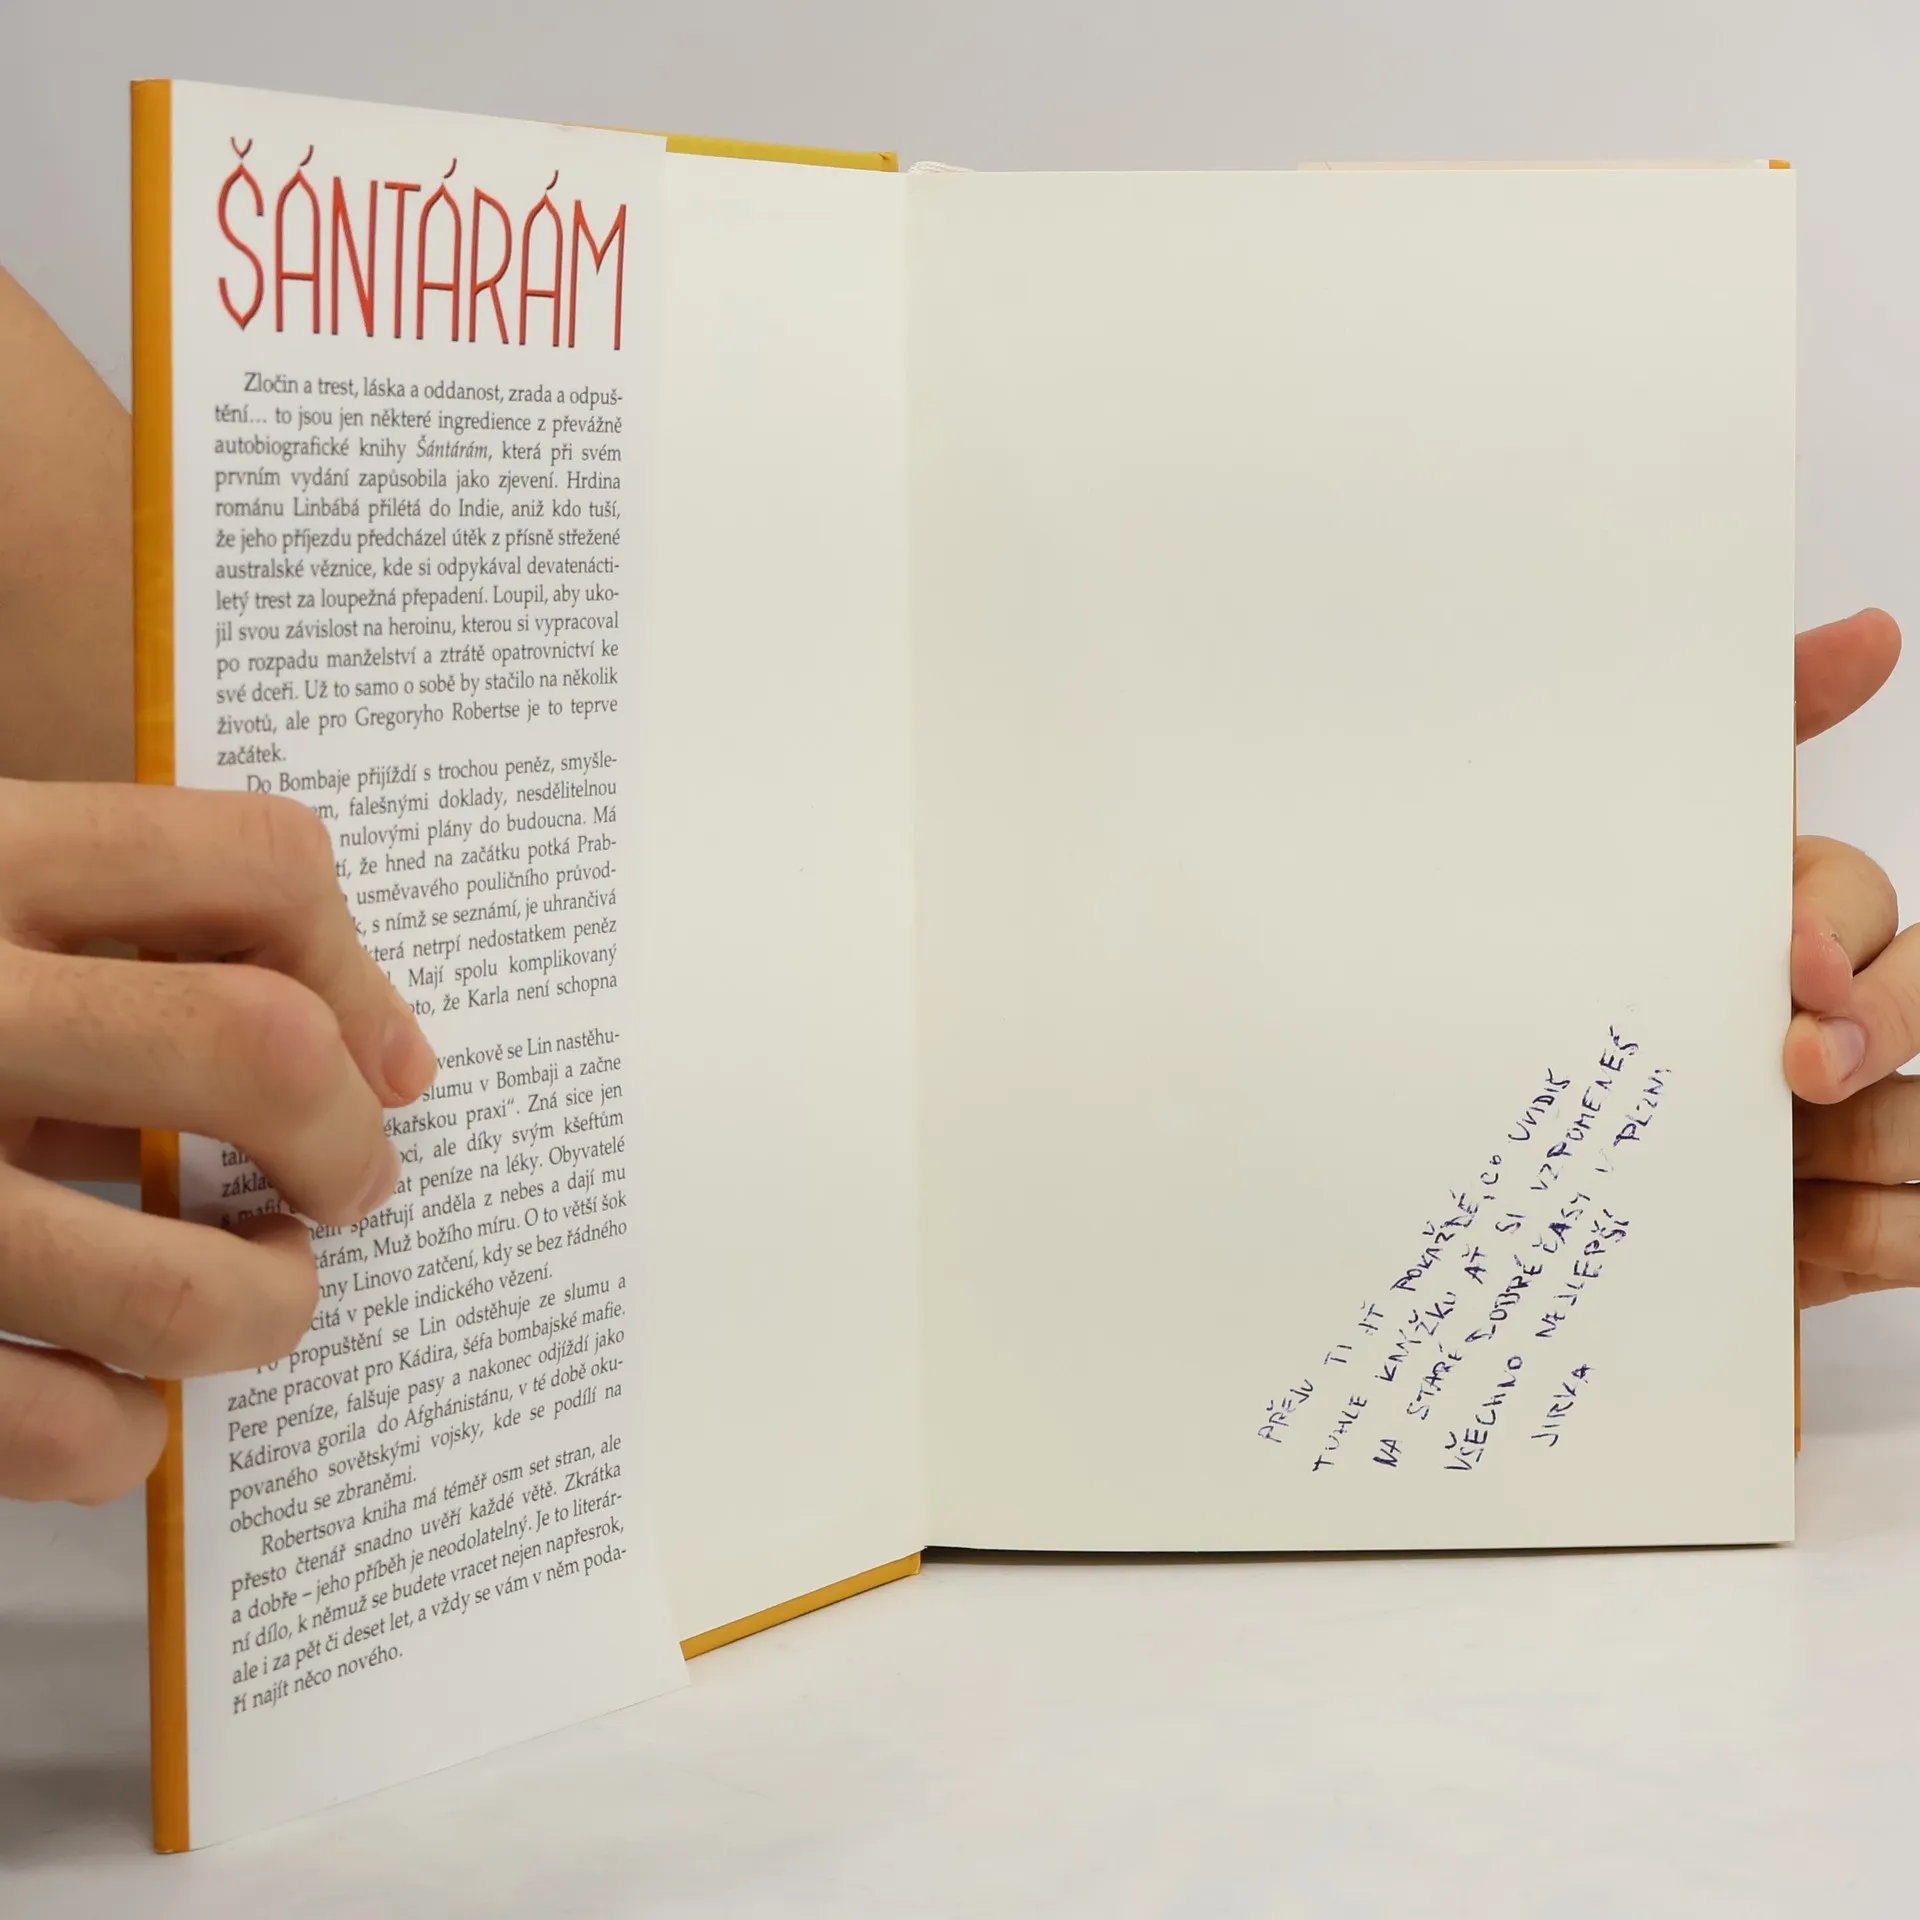 ŠÁNTÁRÁM
Zločin a trest, láska a oddanost, zrada a odpuš-
tění... to jsou jen některé ingredience z převážně
autobiografické knihy Šántárám, která při svém
prvním vydání zapůsobila jako zjevení. Hrdina
románu Linbábá přilétá do Indie, aniž kdo tuší,
že jeho příjezdu předcházel útěk z přísně střežené
australské věznice, kde si odpykával devatenácti-
letý trest za loupežná přepadení. Loupil, aby uko-
jil svou závislost na heroinu, kterou si vypracoval
po rozpadu manželství a ztrátě opatrovnictví ke
své dceři. Už to samo o sobě by stačilo na několik
životů, ale pro Gregoryho Robertse je to teprve
začátek.
Do Bombaje přijíždí s trochou peněz, smyšle-
falešnými doklady, nesdělitelnou
nulovými plány do budoucna. Má
že hned na začátku potká Prab-
usměvavého pouličního průvod-
s nímž se seznámí, je uhrančivá
která netrpí nedostatkem peněz
Mají spolu komplikovaný
že Karla není schopna
venkově se Lin nastěhu-
slumu v Bombaji a začne
praxi“. Zná sice jen
ale díky svým kšeftům
peníze na léky. Obyvatelé
spatřují anděla z nebes a dají mu
Muž božího míru. O to větší šok
Linovo zatčení, kdy se bez řádného
v pekle indického vězení.
Po propuštění se Lin odstěhuje ze slumu a
začne pracovat pro Kádira, šéfa bombajské mafie.
Pere peníze, falšuje pasy a nakonec odjíždí jako
Kádirova gorila do Afghánistánu, v té době oku-
povaného sovětskými vojsky, kde se podílí na
obchodu se zbraněmi.
Robertsova kniha má téměř osm set stran, ale
přesto čtenář snadno uvěří každé větě. Zkrátka
a dobře – jeho příběh je neodolatelný. Je to literár-
ní dílo, k němuž se budete vracet nejen napřesrok,
ale i za pět či deset let, a vždy se vám v něm poda-
ří najít něco nového.
PŘEJU TI AŤ POKAŽDÉ, CO UVIDÍŠ
TUHLE KNÍŽKU AŤ SI VZPOMENEŠ
NA STARÉ DOBRÉ ČASY V PLZNI
VŠECHNO NEJLEPŠÍ
JIRKA